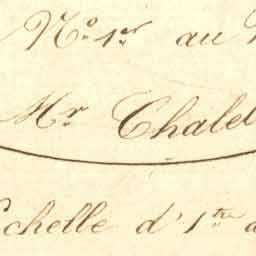 N° 1er au
Mr Chalet
Echelle d'1tre